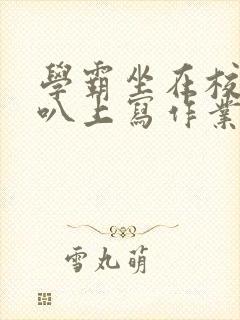 學霸坐在校
叭上寫作業
雪丸萌